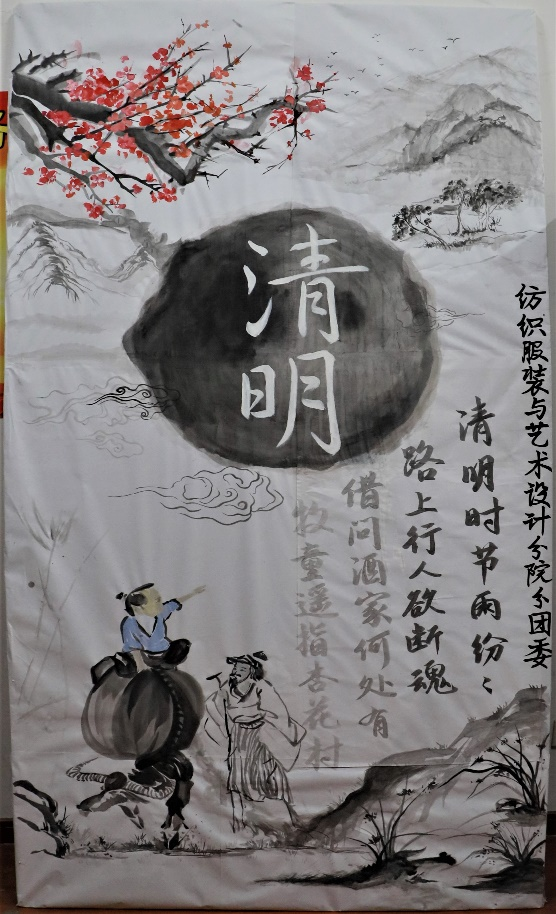 清明
纺织服装与艺术设计分院分团委
清明时节雨纷々
路上行人欲断魂
借问酒家何处有
牧童遥指杏花村